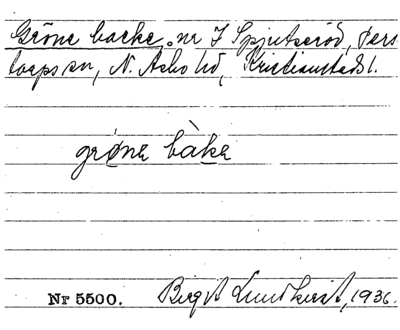 Gröne backe, nr 7 Spjutseröd, Pers
torps sn, N. Åsbo hd, Kristianstads l.
grøna bàka
Nr 5500. Birgit Lundkvist, 1936.